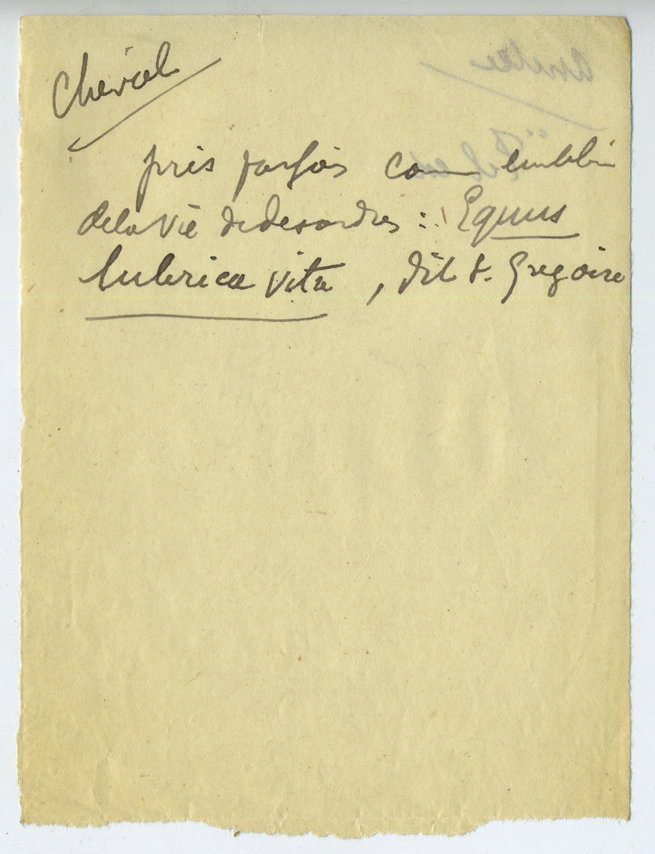 Cheval
pris parfois com emblem
de la vie de desordres : Equus
lubrica vita, dit St. Gregoire